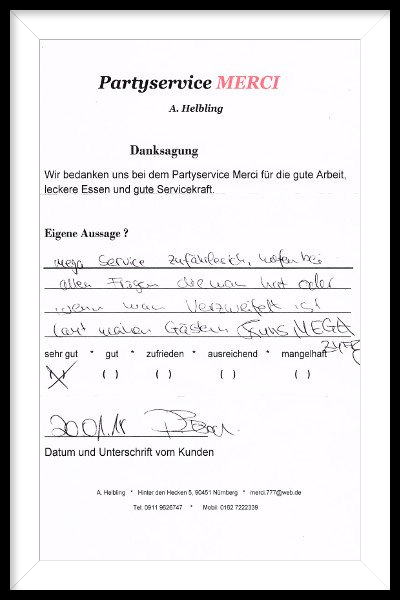 Partyservice MERCI
A. Helbling
Danksagung
Wir bedanken uns bei dem Partyservice Merci für die gute Arbeit,
leckere Essen und gute Servicekraft.
Eigene Aussage ?
mega Service zufahrlesich, helfen bei
allen Fragen die man hat oder
wenn man Verzweifelt ist
laut meinen Gästen Essens MEGA
sehr gut * gut * zufrieden * ausreichend * mangelhaft
( ) ( ) ( ) ( ) ( )
20.01.18
Datum und Unterschrift vom Kunden
A. Helbling * Hinter den Hecken 5, 90451 Nürnberg * merci.777@web.de
Tel: 0911 9626747 * Mobil: 0162 7222339